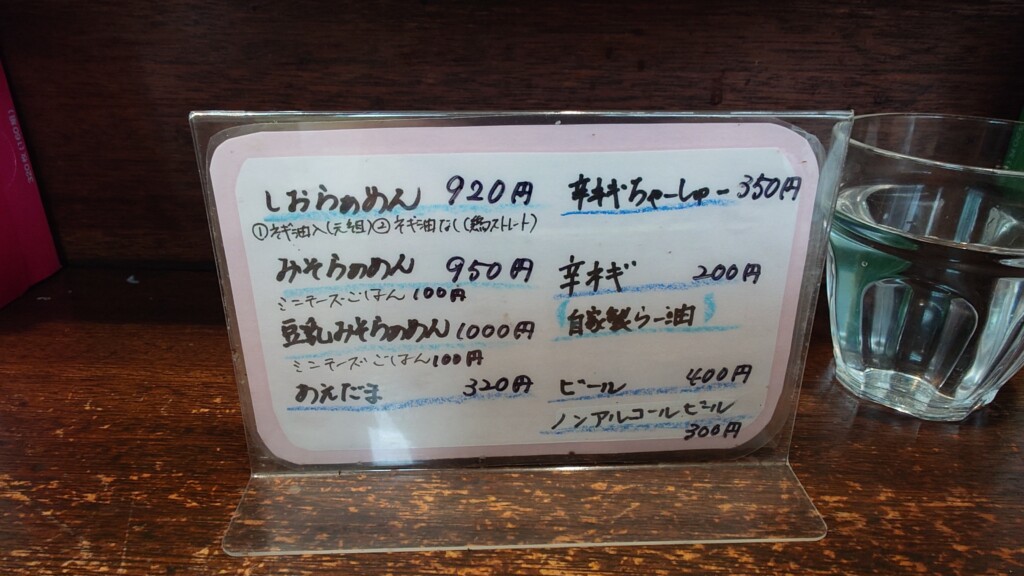 しおらぁめん 920円
①ネギ油入(元祖)② ネギ油なし(鶏ストレート)
みそらぁめん 950円
ミニチーズごはん 100円
豆乳みそらぁめん 1000円
ミニチーズごはん 100円
あえだま 320円
辛ネギちゃーしゅー 350円
辛ネギ 200円
(自家製らー油)
ビール 400円
ノンアルコールビール
300円